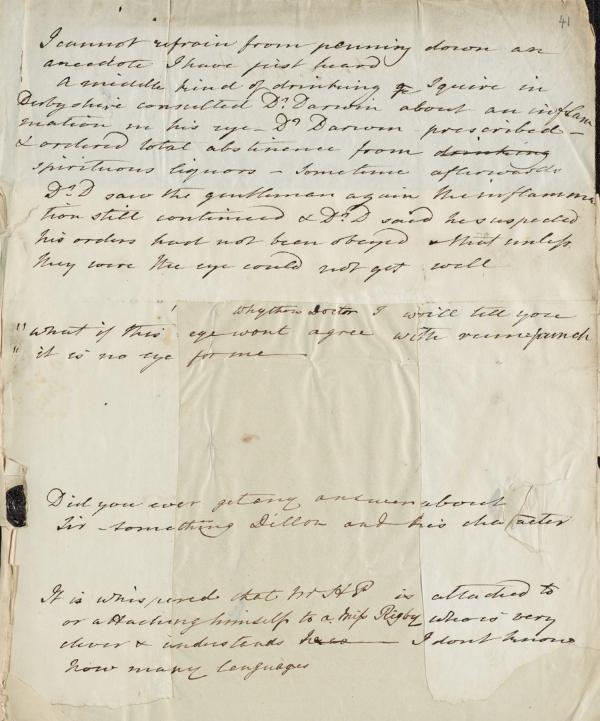 41
I cannot refrain from penning down an
anecdote I have just heard
A middle kind of drinking Squire in
Derbyshire consulted Dr Darwin about an inflam
mation in his eye - Dr Darwin prescribed -
& ordered total abstinence from drinking
spirituous liquors - Sometime afterwards
Dr D saw the gentleman again the inflamma
tion still continued & Dr D said he suspected
his orders had not been obeyed & that unless
they were the eye could not get well
Why then Doctor I will tell you
"what if this eye wont agree with rum punch
" it is no eye for me
Did you ever get any answer about
Sir - something Dillon and his character
It is whispered that Mr H E is attached to
or attaching himself to a Miss Rigby who is very
clever & understands I dont know
how many languages